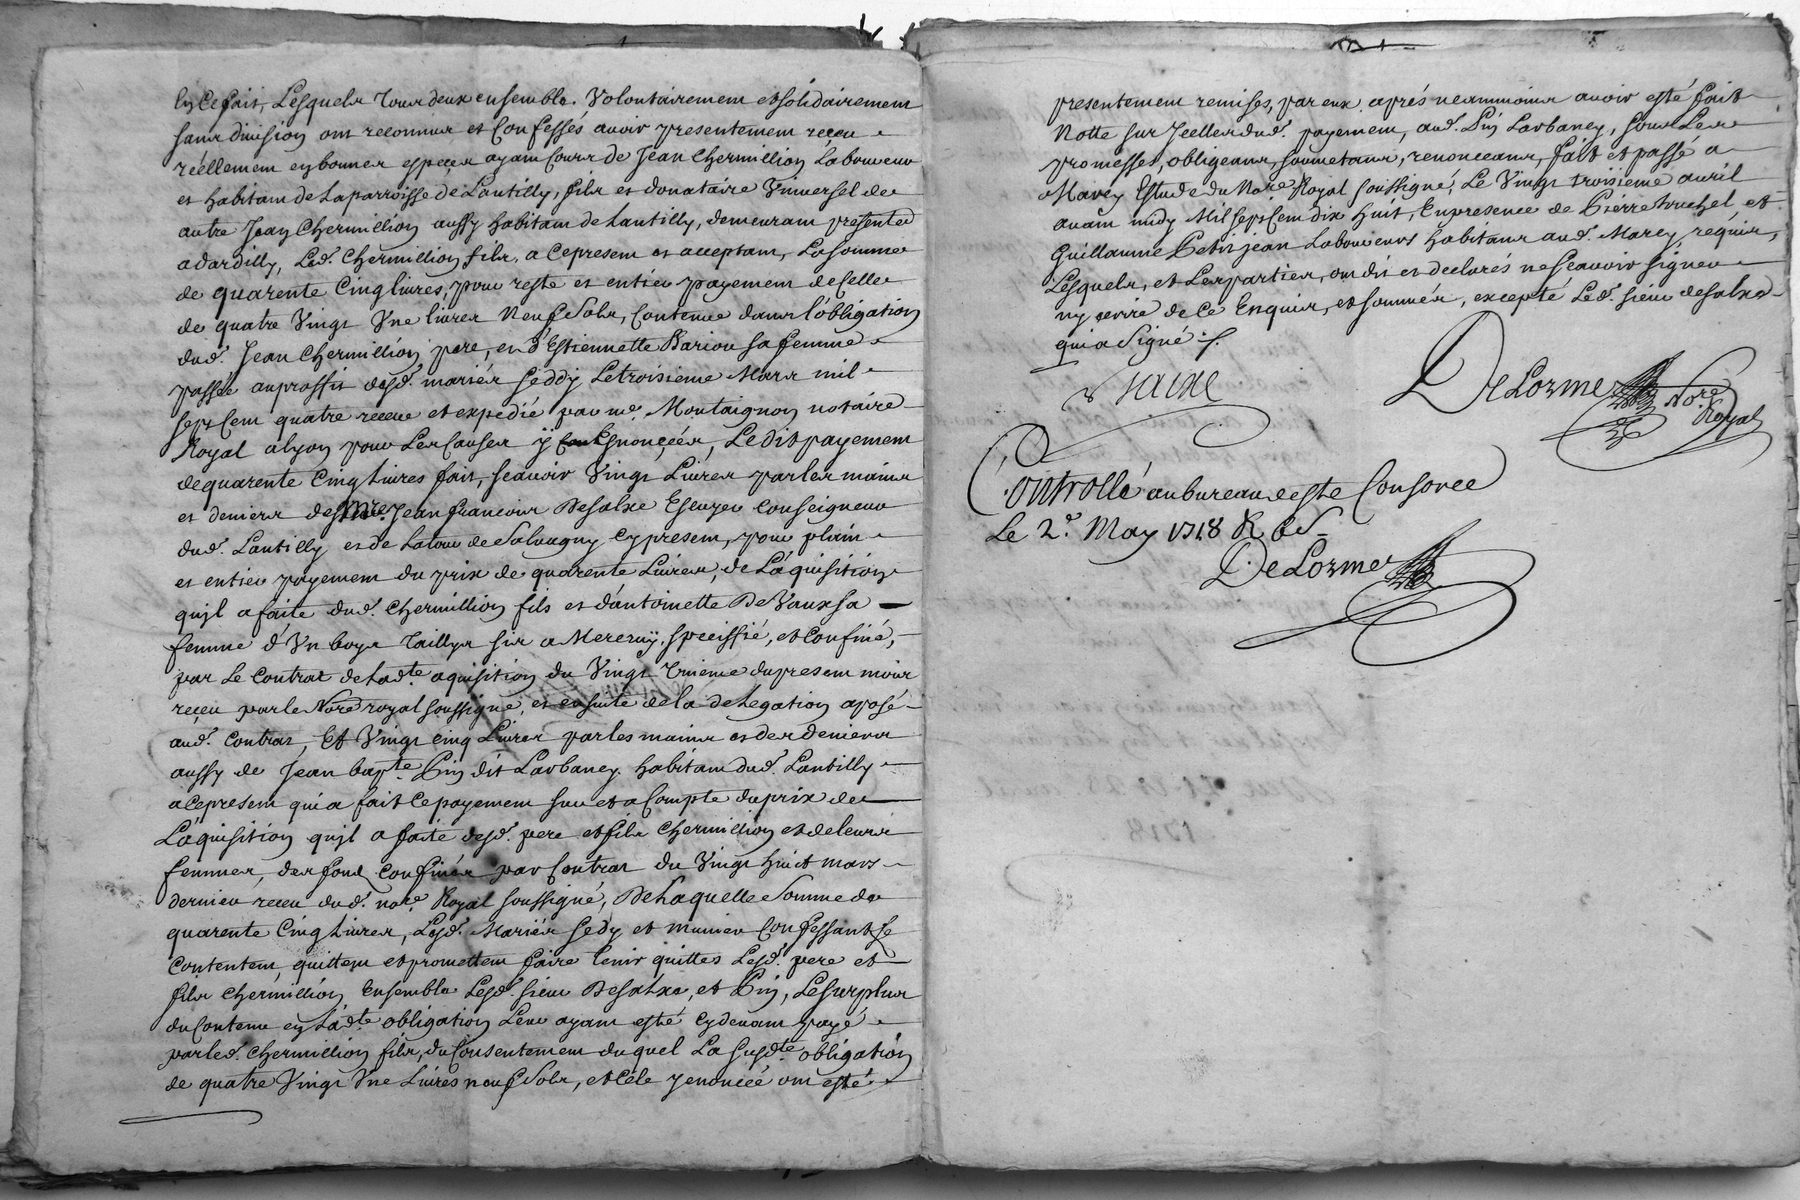 En ce fait, Lesquels tous deux ensemble. Volontairement et solidairement
sans division ont reconnus et Confessés avoir presentement receu
réellement en bonnes espeçes ayant Cours de Jean Chermillion Laboureur
et habitant de La parroisse de Lantilly, fils et donataire Universel de
autre Jean Chermillion aussy habitant de Lantilly, demeurant
a dardilly, Led. Chermillion fils, a Ce present et acceptant, La somme
de quarente Cinq livres, pour reste et entier payement de Celle
de quatre Vingt Une livres Neuf Sols, Contenue dans l'obligation
dud. Jean Chermillion pere, et d'Estiennette Bariou sa femme
passée au proffit desd. mariés Seddy Le troisieme Mars mil
sept Cent quatre receue et expedié par me. Montaignon notaire
Royal a Lyon pour Les Causes y Enonçées, Le dit payement
de quarente Cinq Livres fait, scavoir Vingt Livres par les mains
et deniers de Mre. Jean francois De Salxe Escuyer Conseigneur
dud. Lantilly et de La tour de Salvagny Cy present, pour plain
et entier payement du prix de quarente Livres, de L'aquisition
qu'il a faite dud. Chermillion fils et d'antoinette De Vaux sa
femme d'Un boys Taillys sis a Mereruy, speciffié, et Confiné,
par Le Contrat de Lad.te aquisition du Vingt Unieme du present mois
reçeu par le No.re royal soussigné, et ensuite de la delegation aposé
aud. Contrat, Et Vingt cinq Livres par les mains et des deniers
aussy de Jean bap.te Pin dit Larbaney habitant dud. Lantilly
a Ce present qui a fait Ce payement sur et a Compte du prix de
L'aquisition qu'il a faite desd. pere et fils Chermillion et de leurs
femmes, des fond Confinés par Contrat du Vingt huict mars
dernier receu dud. no.re Royal soussigné, De Laquelle Somme de
quarente Cinq Livres, Lesd. Mariés Sedy et munier Confessant se
Contentent, quittent et promettent faire tenir quittes Lesd. pere et
fils Chermillion, Ensemble Lesd. sieur De Salxe, et Pin, Le surplus
du Contenu en Lad.te obligation Leur ayant esté Cy devant payé
par led. Chermillion fils, du Consentement du quel La susd.te obligation
de quatre Vingt Une Livres neuf Sols, et Cele y enoncée ont esté
presentement remises, par eux aprés neanmoins avoir esté fait
Notte sur Icelles dud. payement, aud. Pin Larbaney, sous Les
promesses, obligeans, soumetans, renonceans, fait et passé a
Marcy Estude du No.re Royal soussigné, Le Vingt troisieme avril
avant midy Mil sept Cent dix huit, En presence de Pierre Truchet et
Guillaume Petit jean Laboureurs habitans aud. Marcy requis,
Lesquels, et Les parties, ont dit et declarés ne Scavoir signer
ny ecrire de Ce Enquis, et sommés, excepté Led. sieur de Salxe
qui a Signé ./.
Salxe
DeLorme No.re
Royal
Controllé au bureau de ste Consorce
Le 2.e May 1718 R
DeLorme